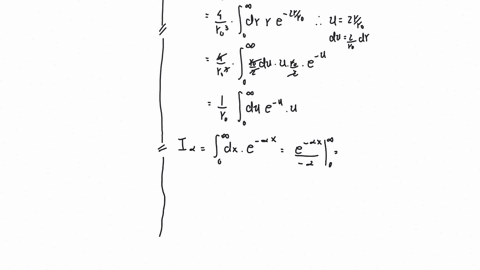 = 4/r₀³ · ∫₀^∞ dr r e^(-2r/r₀) ∴ u = 2r/r₀
du = 2/r₀ dr
= 4/r₀³ · ∫₀^∞ r₀/2 du · u · r₀/2 · e^(-u)
= 1/r₀ ∫₀^∞ du e^(-u) · u
I_α = ∫₀^∞ dx · e^(-αx) = e^(-αx)/-α |₀^∞ =